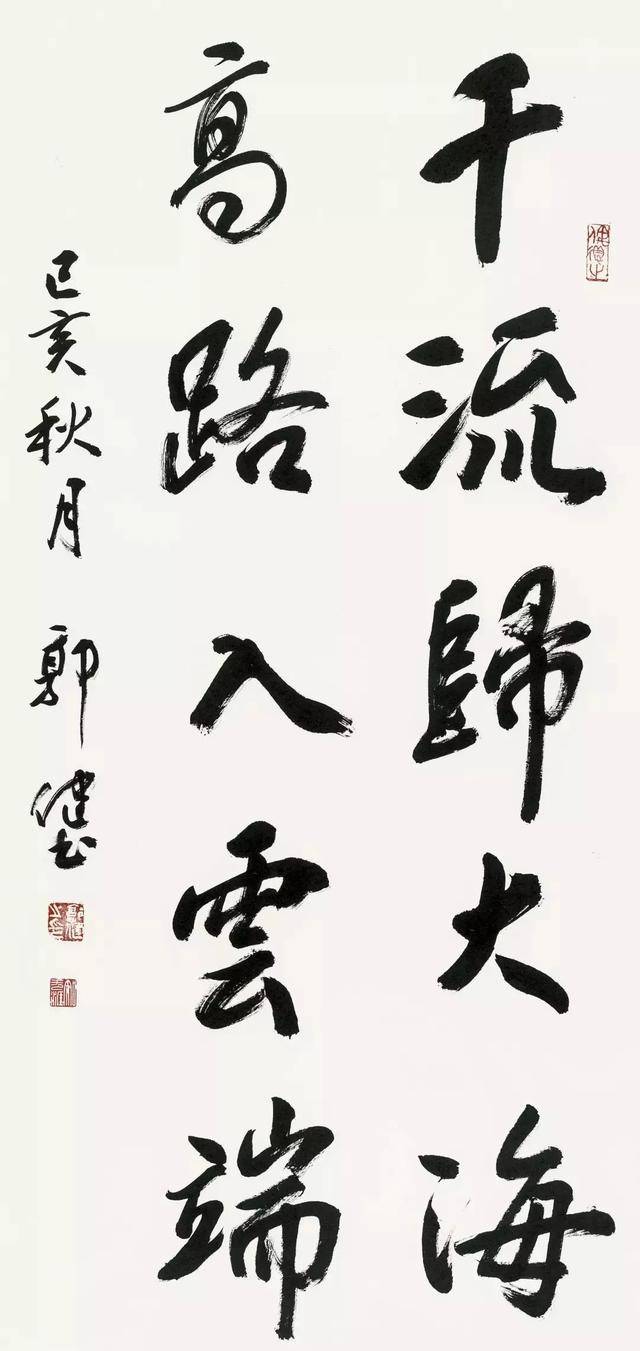 千流歸大海
高路入雲端
己亥秋月 郭健書